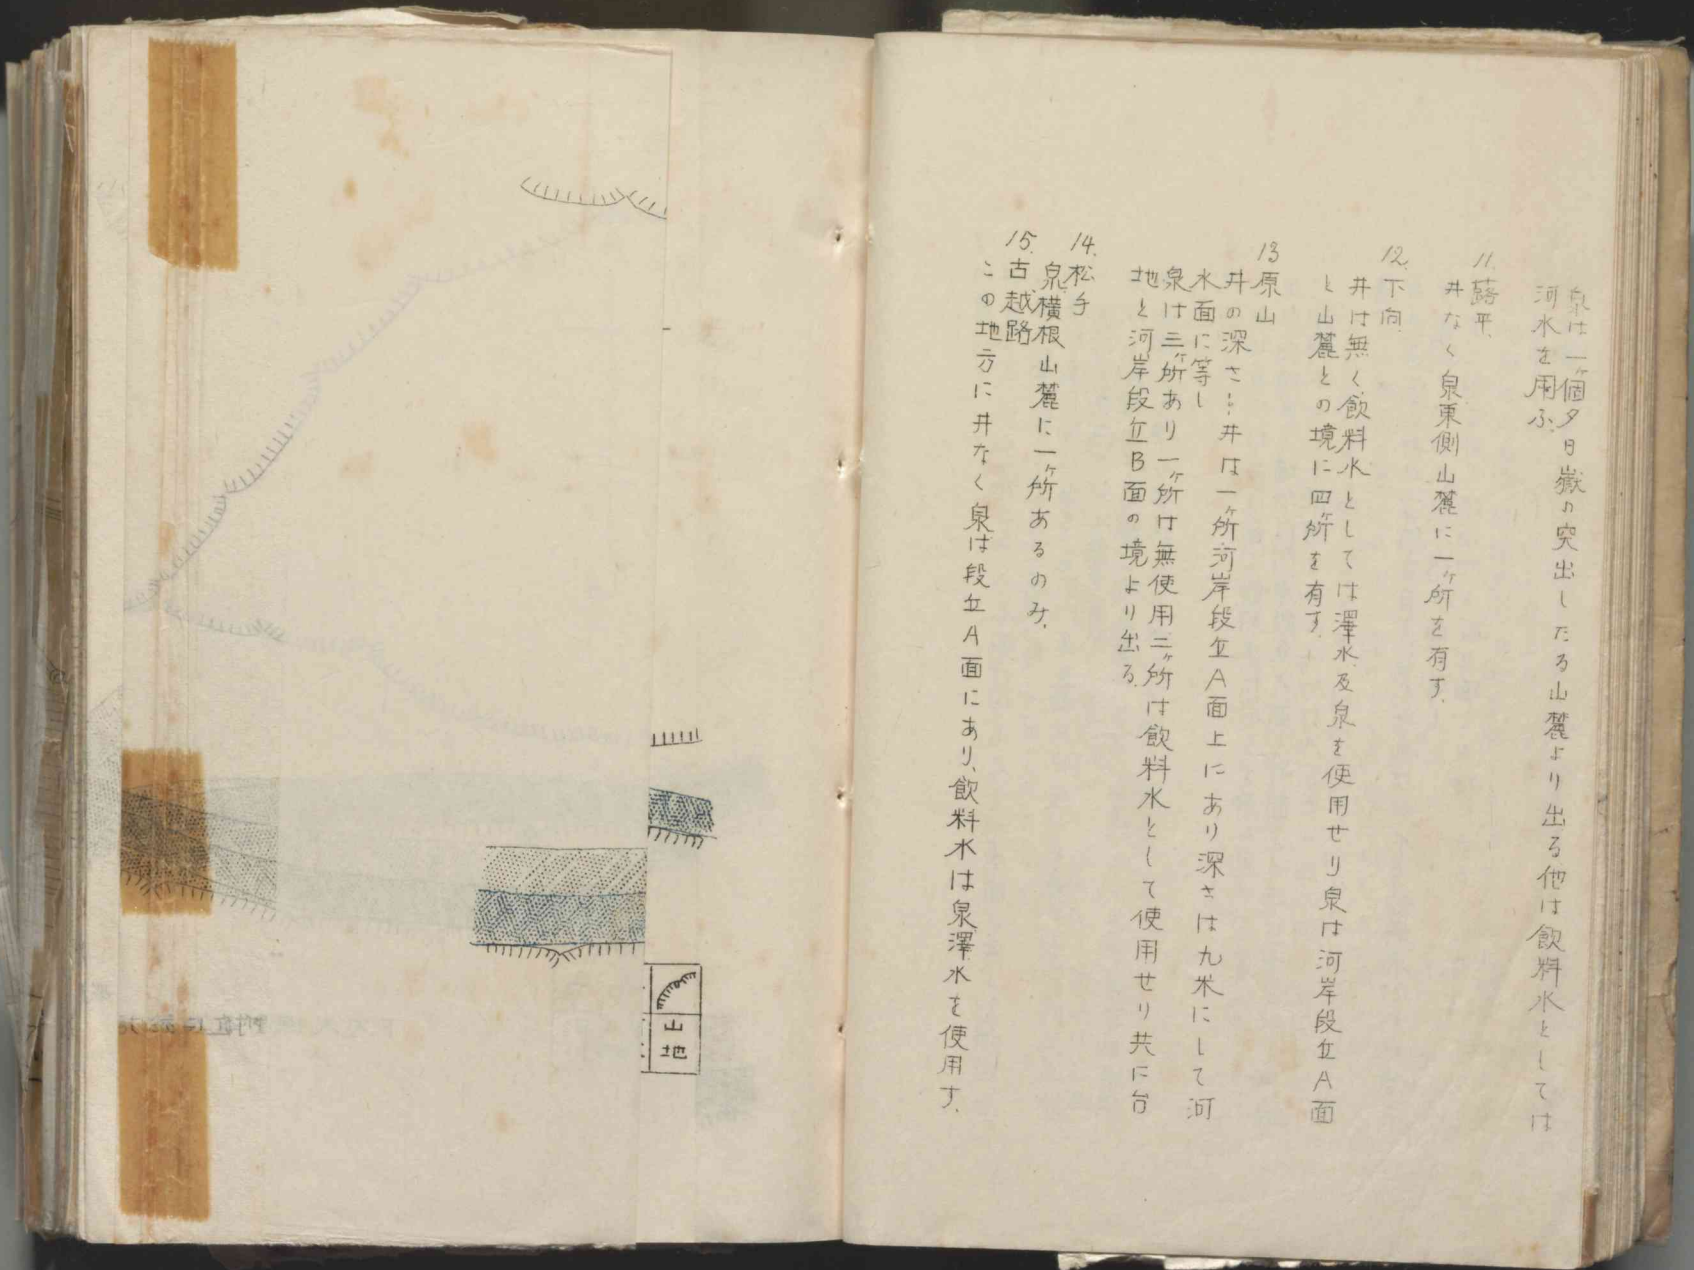 泉は一ヶ個夕日嶽の突出したる山麓より出る他は飲料水としては
河水を用ふ
11. 蕗平
井なく泉東側山麓に一ヶ所を有す.
12. 下向
井は無く飲料水としては澤水及泉を使用せり泉は河岸段丘A面
と山麓との境に四ヶ所を有す.
13 原山
井の深さ…井は一ヶ所河岸段丘A面上にあり深さは九米にして河
水面に等し
泉は三ヶ所あり一ヶ所は無使用二ヶ所は飲料水として使用せり共に台
地と河岸段丘B面の境より出る.
14. 松手
泉横根山麓に一ヶ所あるのみ.
15. 古越路
この地方に井なく泉は段丘A面にあり、飲料水は泉澤水を使用す.
山地